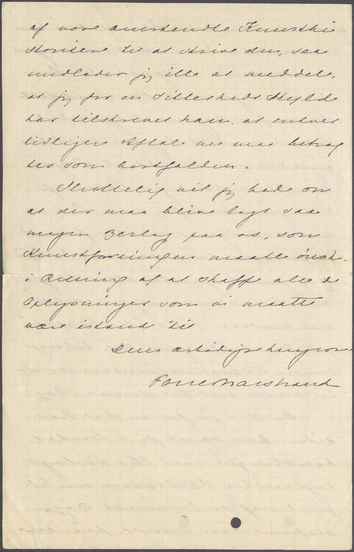 af vore anerkendte Kunsthi-
storikere til at skrive den, saa
undlader jeg ikke at meddele,
at jeg for en Sikkerheds Skyld
har tilskrevet ham, at enhver
tidligere Aftale nu maa betrag-
tes som bortfalden.
Skulde jeg bede om
at der maa blive lagt saa
megen Beslag paa os, som
Kunstforeningen maatte ønske
i Retning af at skaffe alle de
Oplysninger som vi maatte
være istand til
Deres ærbødigst hengivne
Poul Marstrand